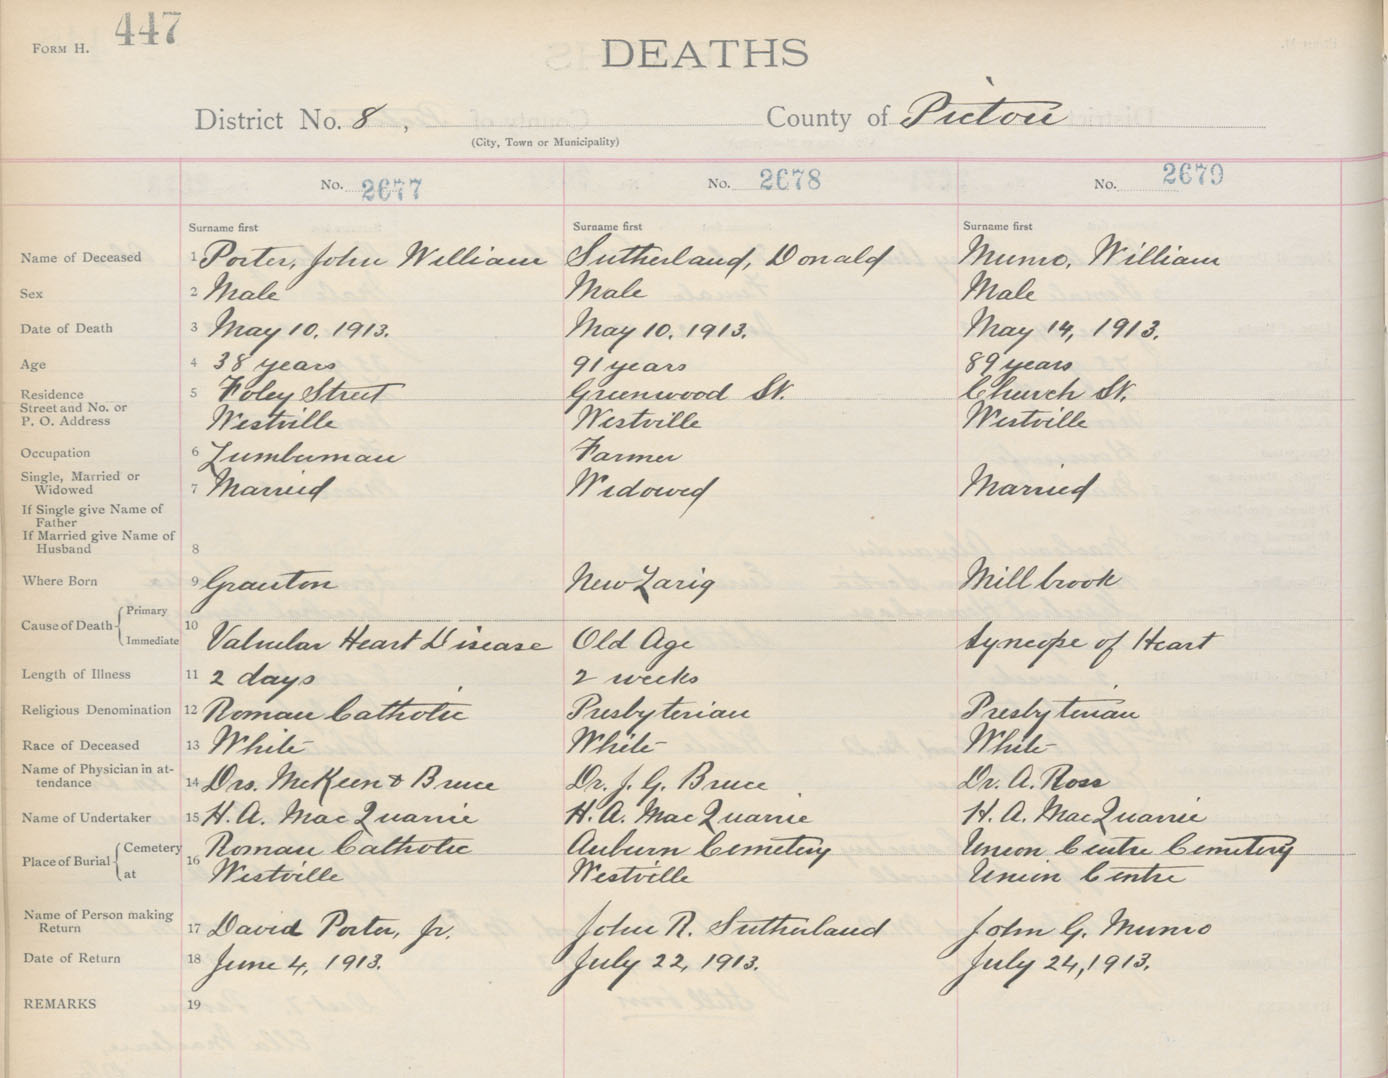 FORM H. 447
DEATHS
District No. 8, County of Pictou
(City, Town or Municipality)
No. 2677 No. 2678 No. 2679
Surname first Surname first Surname first
Name of Deceased 1 Porter, John William Sutherland, Donald Munro, William
Sex 2 Male Male Male
Date of Death 3 May 10, 1913. May 10, 1913. May 14, 1913.
Age 4 38 years 91 years 89 years
Residence 5 Foley Street Greenwood St. Church St.
Street and No. or
P. O. Address Westville Westville Westville
Occupation 6 Lumberman Farmer
Single, Married or
Widowed 7 Married Widowed Married
If Single give Name of
Father
If Married give Name of
Husband 8
Where Born 9 Granton New Larig Millbrook
Cause of Death Primary
Immediate 10 Valvular Heart Disease Old Age Syncope of Heart
Length of Illness 11 2 days 2 weeks
Religious Denomination 12 Roman Catholic Presbyterian Presbyterian
Race of Deceased 13 White White White
Name of Physician in at-
tendance 14 Drs. McKeen & Bruce Dr. J. G. Bruce Dr. A. Ross
Name of Undertaker 15 H. A. MacQuarrie H. A. MacQuarrie H. A. MacQuarrie
Place of Burial Cemetery 16 Roman Catholic Auburn Cemetery Union Centre Cemetery
at Westville Westville Union Centre
Name of Person making
Return 17 David Porter, Jr. John R. Sutherland John G. Munro
Date of Return 18 June 4, 1913. July 22, 1913. July 24, 1913.
REMARKS 19